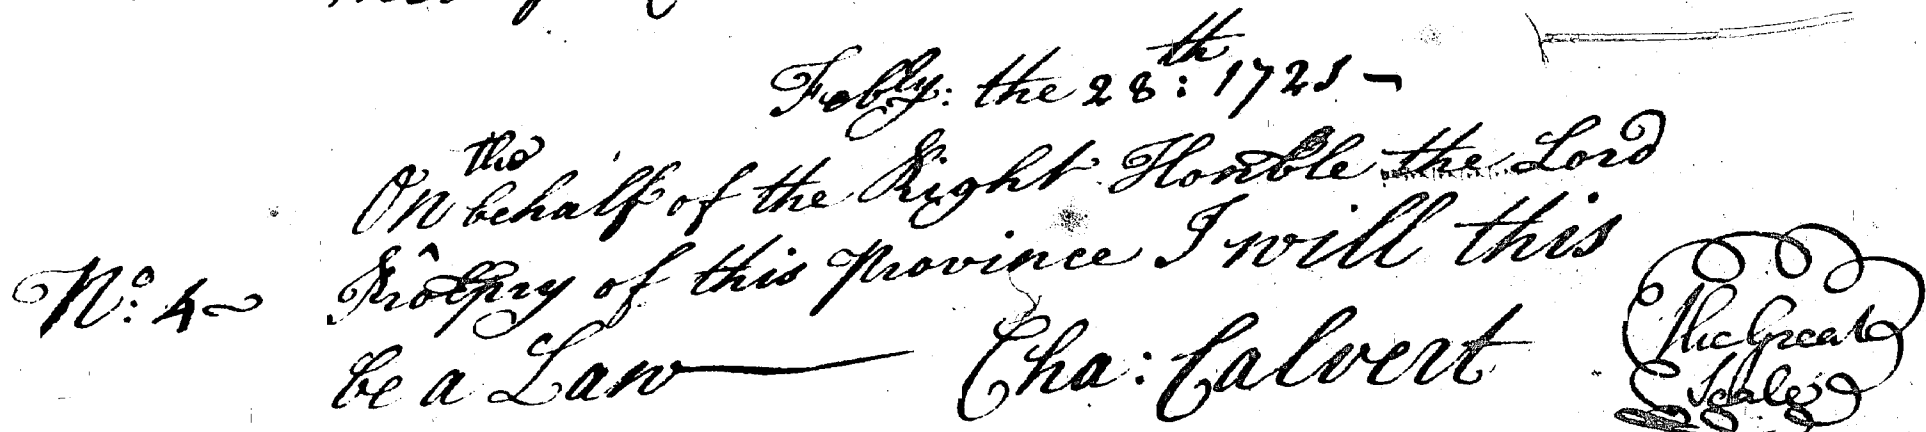 Febry: the 28th: 1721
the
On behalf of the Right Honble the Lord
Propry of this Province I will this
No: 4 be a Law Cha: Calvert
The Great
Seale